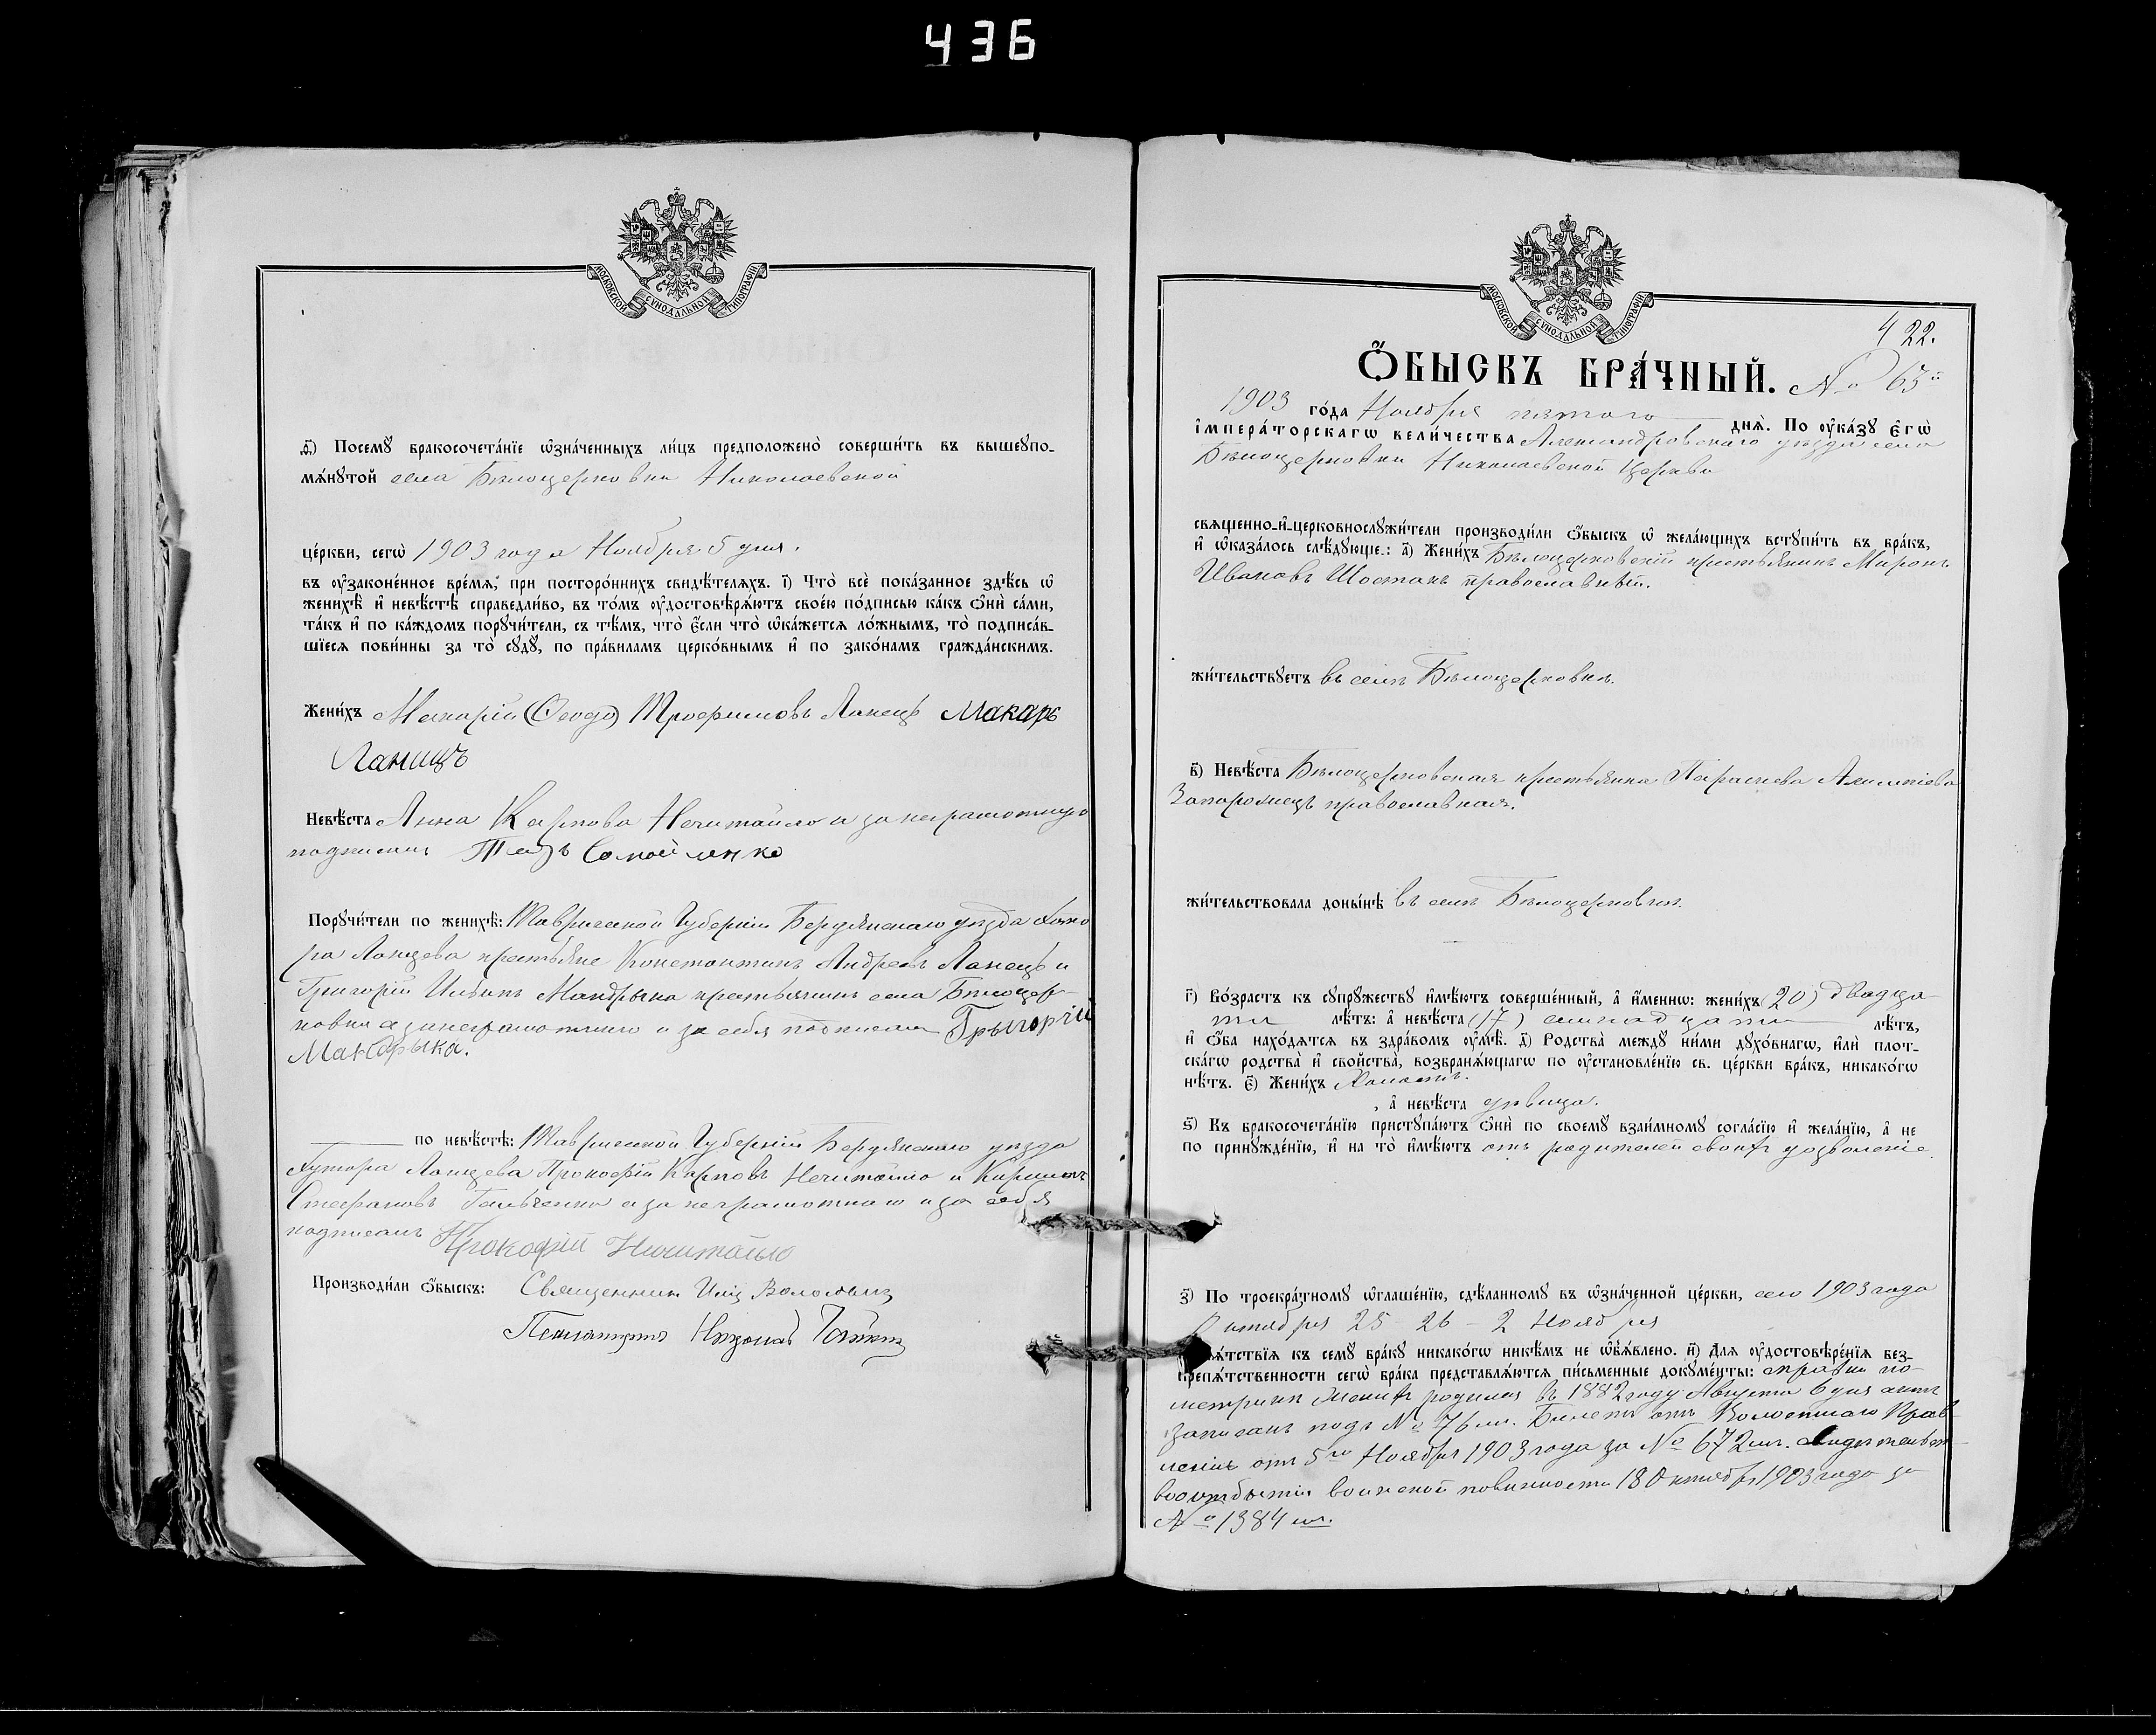 436
МОСКОВСКОЙ СѴНОДАЛЬНОЙ ТИПОГРАФІИ.
ѳ҃) Посемꙋ бракосочета́нїе ѡ҆зна́ченныхъ ли́цъ предположено̀ соверши́ть въ вышеупо-
мѧ́нꙋтой села Бѣлоцерковки Николаевской
це́ркви, сегѡ̀ 1903 года Ноября 5 дня.
въ ᲂу҆законе́нное вре́мѧ, при посторо́ннихъ свидѣ́телѧхъ. і҃) Что̀ всѐ пока́занное здѣ́сь ѡ҆
женихѣ̀ и҆ невѣ́стѣ справедли́во, въ то́мъ ᲂу҆достовѣрѧ́ютъ свое́ю по́дписью ка́къ ѻ҆нѝ са́ми,
та́къ и҆ по ка́ждомъ порꙋчи́тели, съ тѣ́мъ, что̀ є҆́сли что̀ ѡ҆ка́жетсѧ ло́жнымъ, то̀ подписа́в-
шїесѧ пови́нны за то̀ сꙋдꙋ̀, по пра́виламъ церко́внымъ и҆ по зако́намъ гражда́нскимъ.
Жени́хъ Макарій (Ѳеодо) Трофимовъ Ланецъ Макарь
Ланицъ
Невѣ́ста Анна Карпова Нечитайло а за неграмотную
подписалъ Самойленко
Порꙋчи́тели по женихѣ̀: Таврической Губерніи Бердянскаго уѣзда Хуто
ра Ланцева крестьяне Константинъ Андреевъ Ланецъ и
Григорій Ильинъ Мандрыка крестьянинъ села Бѣлоцер-
ковки а за неграмотнаго и за себя подписалъ Грыгорій
Мандрыка.
по невѣ́стѣ: Таврической Губерніи Бердянскаго уѣзда
Хутора Ланцева Прокофій Карповъ Нечитайло и Кириллъ
Стефановъ Гальченко а за неграмотнаго и за себя
подписалъ Прокофій Ничитайло
Производи́ли ѻ҆́быскъ: Священникъ
Псаломщикъ Николай
МОСКОВСКОЙ СѴНОДАЛЬНОЙ ТИПОГРАФІИ.
422.
Ѻ҆́БЫСКЪ БРА́ЧНЫЙ. № 65й
1903 го́да Ноября пятаго днѧ̀. По ᲂу҆ка́зꙋ є҆гѡ̀
і҆мпера́торскагѡ вели́чества Александровскаго уѣзда села
Бѣлоцерковки Николаевской Церкви
свѧщенно-и҆-церковнослꙋжи́тели производи́ли ѻ҆́быскъ ѡ҆ жела́ющихъ встꙋпи́ть въ бра́къ,
и҆ ѡ҆каза́лось слѣ́дꙋюще.: а҃) Жени́хъ Бѣлоцерковскій крестьянинъ Миронъ
Ивановъ Шостакъ православный.
жи́тельствꙋетъ въ селѣ Бѣлоцерковкѣ.
в҃) Невѣ́ста Бѣлоцерковская крестьянка Параскева Алимпіева
Запорожецъ православная.
жи́тельствовала доны́нѣ въ селѣ Бѣлоцерковкѣ.
г҃) Во́зрастъ къ сꙋпрꙋ́жествꙋ и҆мѣ́ютъ соверше́нный, а҆ и҆́меннѡ: жени́хъ (20) двадца
ти лѣ́тъ: а҆ невѣ́ста (17) семнадцати лѣ́тъ,
и҆ ѻ҆́ба нахо́дѧтсѧ въ здра́вомъ ᲂу҆мѣ̀. д҃) Родства̀ междꙋ ни́ми дꙋхо́внагѡ, и҆лѝ плот-
ска́гѡ родства̀ и҆ свойства̀, возбранѧ́ющагѡ по ᲂу҆становле́нїю св. це́ркви бра́къ, никако́гѡ
нѣ́тъ. є҃) Жени́хъ Холостъ.
, а҆ невѣ́ста дѣвица.
ѕ҃) Къ бракосочета́нїю пристꙋпа́ютъ ѻ҆нѝ по своемꙋ̀ взаи́мномꙋ согла́сїю и҆ жела́нїю, а҆ не
по принꙋжде́нїю, и҆ на то̀ и҆мѣ́ютъ отъ родителей своихъ дозволеніе.
з҃) По троекра́тномꙋ ѡ҆глаше́нїю, сдѣ́ланномꙋ въ ѡ҆зна́ченной це́ркви, сего 1903 года
Октября 25 - 26 - 2 Ноября
пѧ́тствїѧ къ семꙋ̀ бра́кꙋ никако́гѡ никѣ́мъ не ѡ҆б̾ѧ́влено. и҃) Длѧ ᲂу҆достовѣре́нїѧ без-
препѧ́тственности сегѡ̀ бра́ка представлѧ́ютсѧ пи́сьменные докꙋме́нты: справки по
метрикѣ Женихъ родился въ 1882 году Августа 6 дня актъ
записанъ подъ № 76 мъ. Билетъ отъ Волостнаго Прав-
ленія отъ 5го Ноября 1903 года за № 672 мъ.
воинской повинности 18 Октября 1903 года за
№ 1384 мъ.